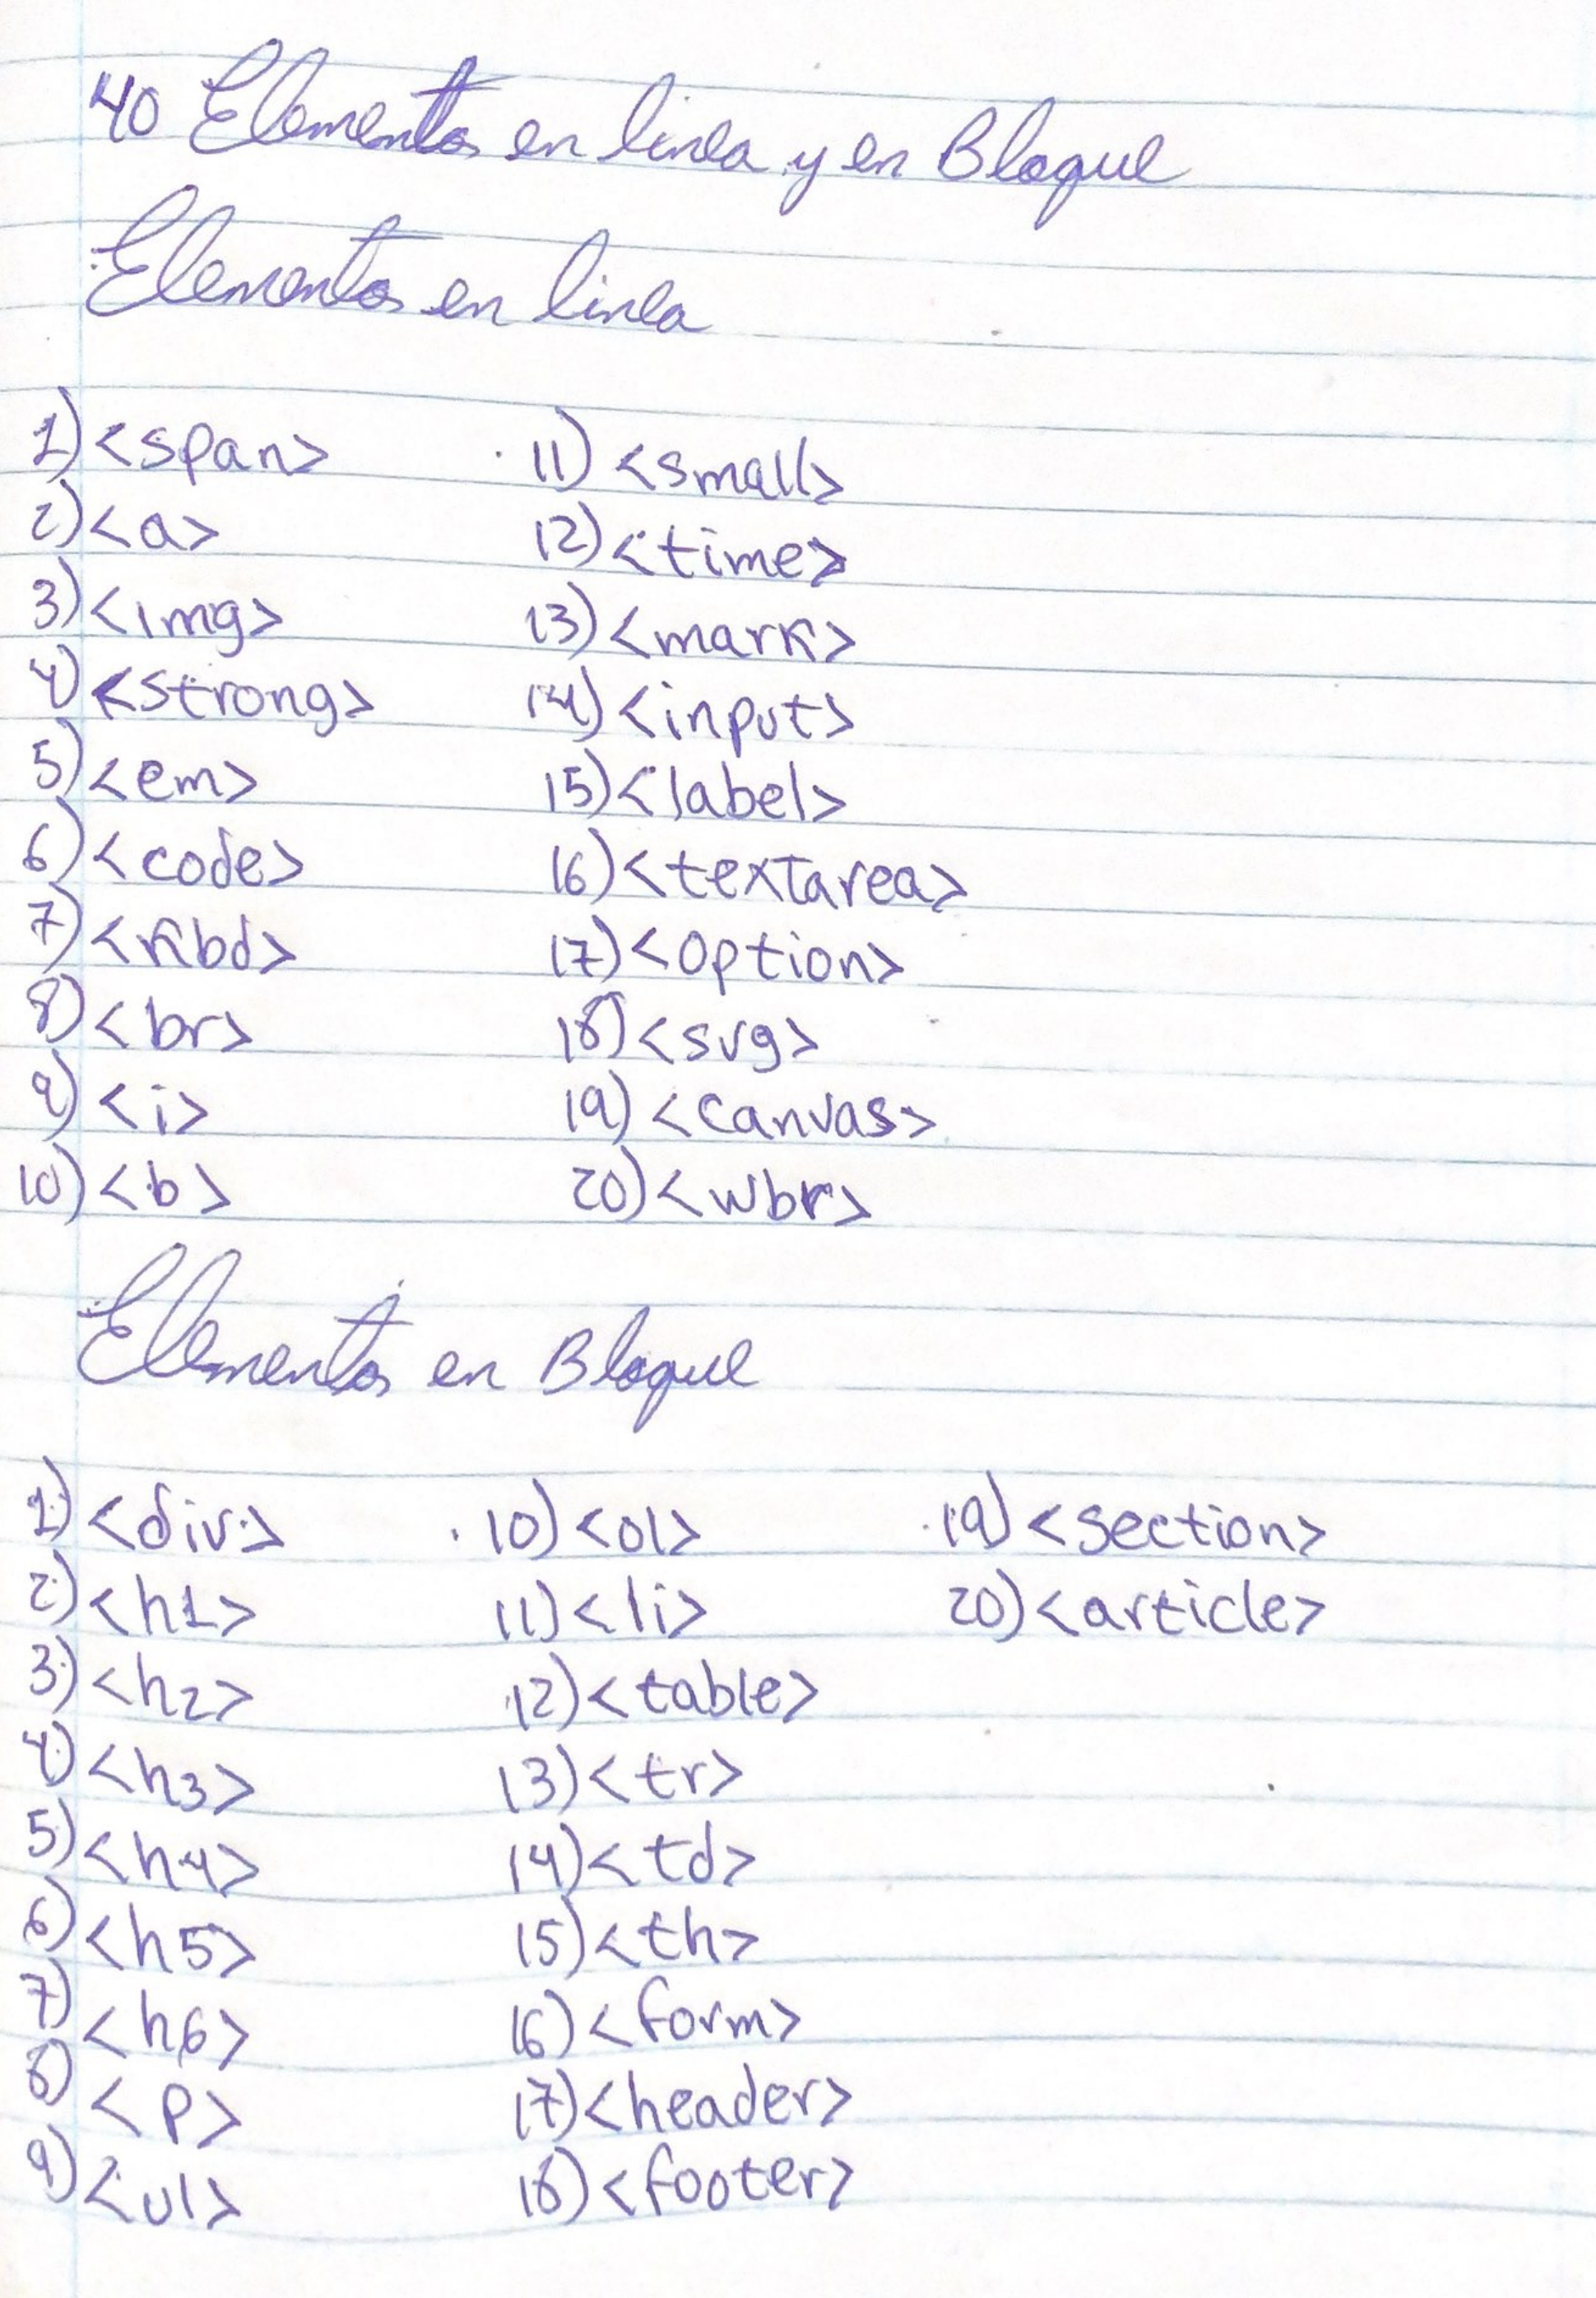 40 Elementos en linea y en Bloque
Elementos en linea
1) <span>
2) <a>
3) <img>
4) <strong>
5) <em>
6) <code>
7) <kbd>
8) <br>
9) <i>
10) <b>
11) <small>
12) <time>
13) <mark>
14) <input>
15) <label>
16) <textarea>
17) <option>
18) <svg>
19) <canvas>
20) <wbr>
Elementos en Bloque
1) <div>
2) <h1>
3) <h2>
4) <h3>
5) <h4>
6) <h5>
7) <h6>
8) <p>
9) <ul>
10) <ol>
11) <li>
12) <table>
13) <tr>
14) <td>
15) <th>
16) <form>
17) <header>
18) <footer>
19) <section>
20) <article>